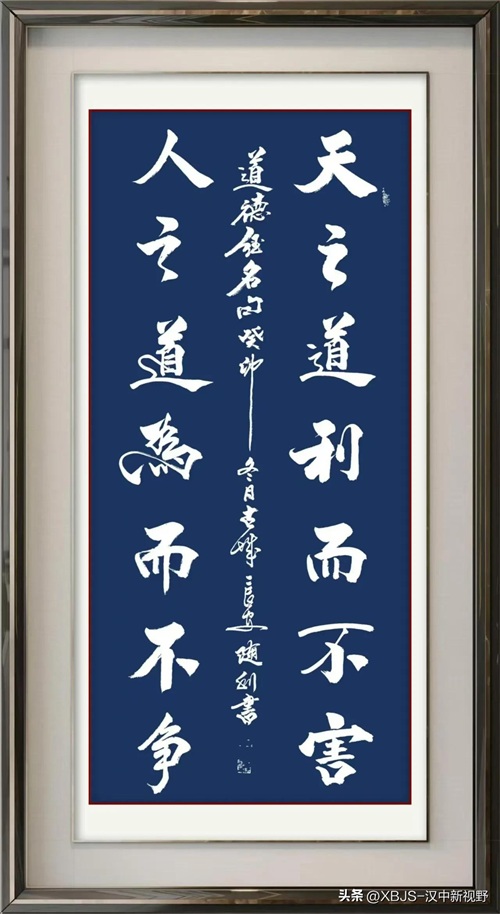 天之道利而不害
人之道為而不争
道德經名句癸卯冬月古城長安随利書
头条 @XBJS-汉中新视野